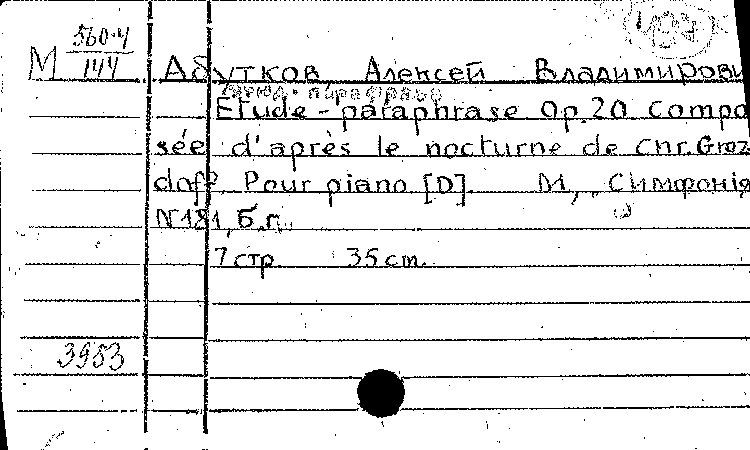 М 560-4
144
197
Абутков, Алексей Владимирови
Этюд-парафраза
Etude-paraphrase Op.20 compo
sée d'après le nocturne de Chr. Groz
doff. Pour piano [D]. М., „Симфонiя
N181, б.г.
7 стр. 35 cm.
3983